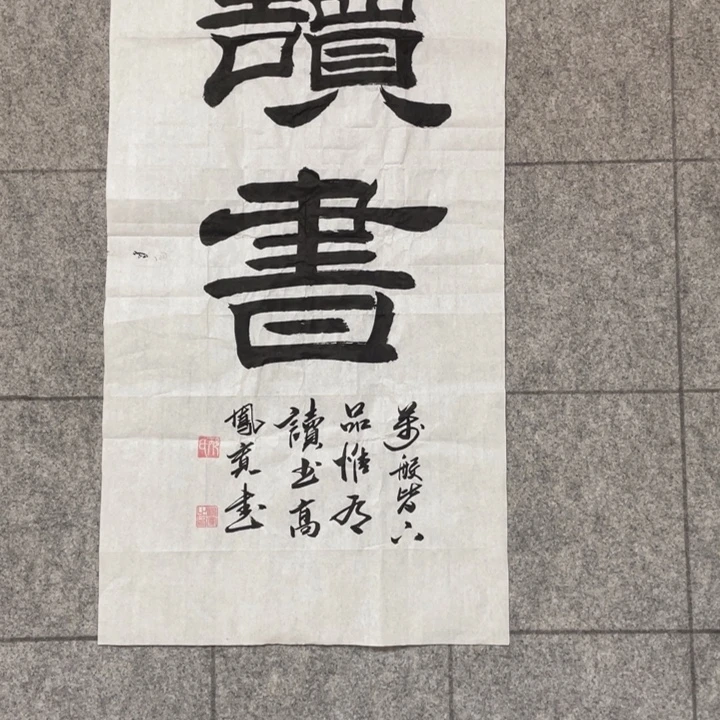 讀
書
萬般皆下
品惟有
讀书高
鳳寬書